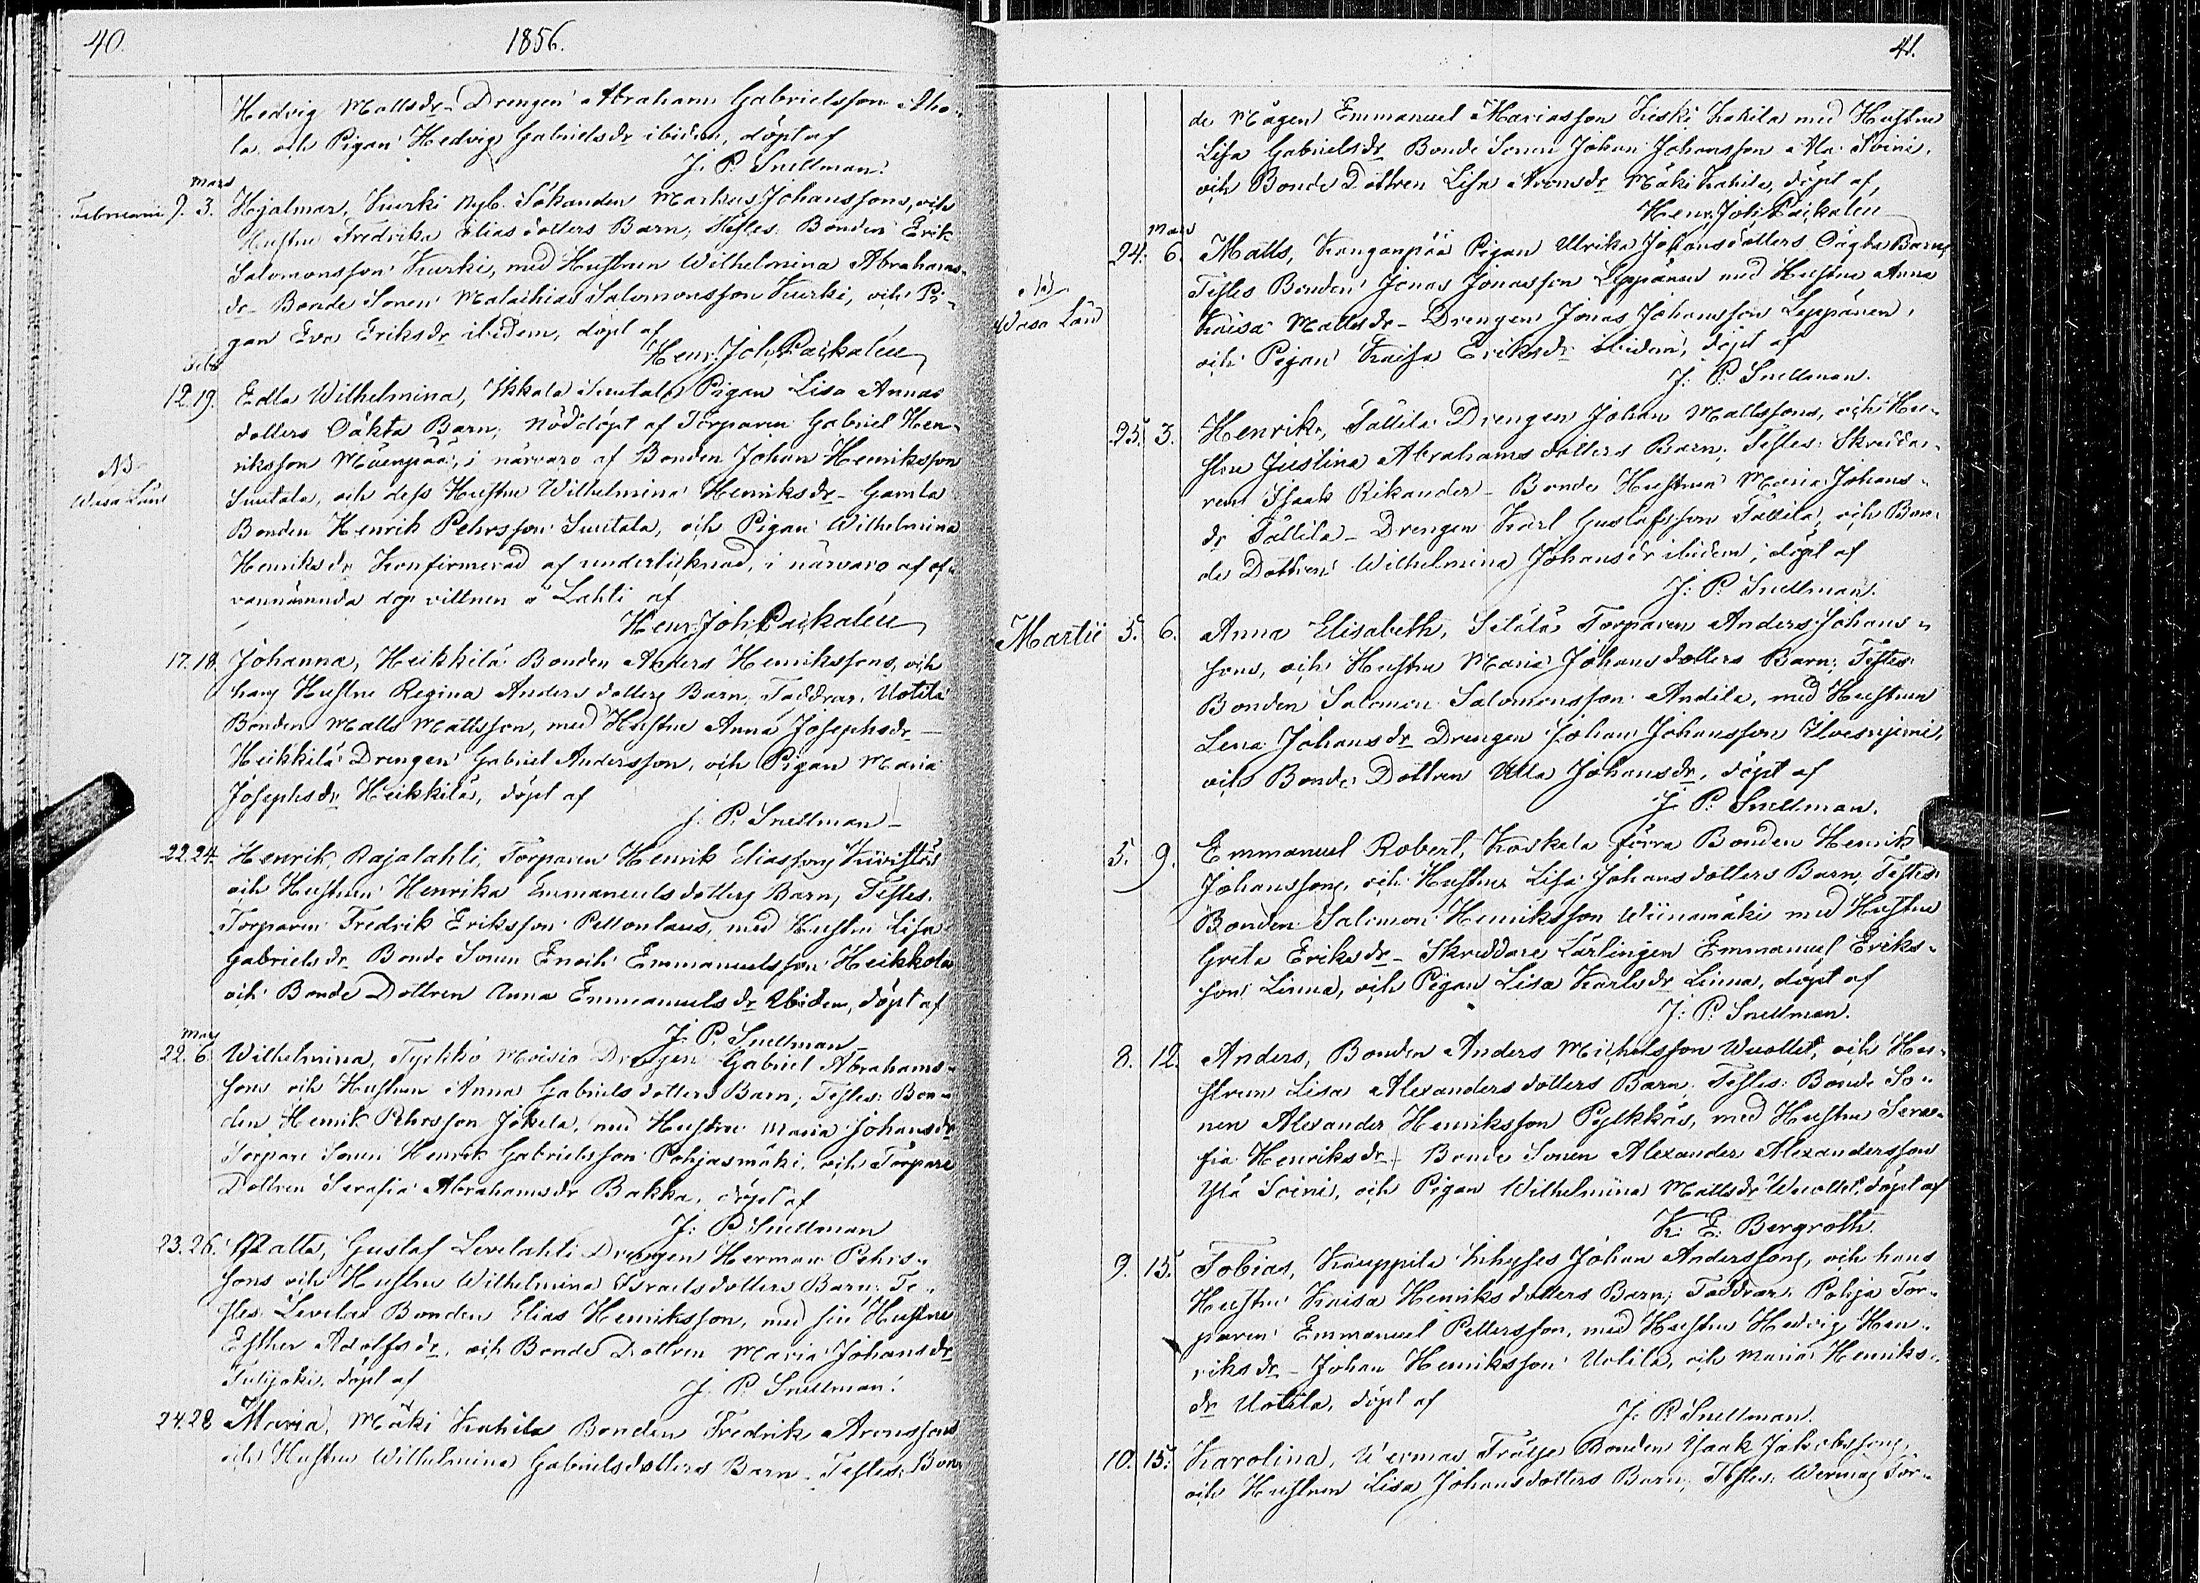 40.
1856.
Hedvig Mattsdr - Drengen Abraham Gabrielsson Aho-
la och Pigan Hedvig Gabrielsdr ibidem, döpt af
J. P. Snellman.
Mars
Februarii 9. 3. Hjalmar, Kurki Nyb. Sökanden Markus Johanssons, och
Hustru Fredrika Eliasdotters Barn; Testes: Bonden Erik
Salomonsson Kurki, med Hustrun Wilhelmina Abrahams-
dr - Bonde Sonen Malachias Salomonsson Kurki, och Pi-
gan Eva Eriksdr ibidem, döpt af
Henr. Joh. Paikalén
Febr
12. 19. Edla Wilhelmina, Ikkala Suutala Pigan Lisa Annas
dotters Oäkta Barn; Nöddöpt af Torparen Gabriel Hen-
riksson Mäenpää, i närvaro af Bonden Johan Henriksson
NB
Wasa Län
Suutala, och dess Hustru Wilhelmina Henriksdr - Gamla
Bonden Henrik Pehrsson Suutala, och Pigan Wilhelmina
Henriksdr Konfirmerad af undertecknad, i närvaro af of-
vannämnda dop vittnen å Lahti af
Henr. Joh. Paikalén
17. 18. Johanna, Heikkilä Bonden Anders Henrikssons, och
hans Hustru Regina Anders dotters Barn, Faddrar: Uotila
Bonden Matts Mattsson, med Hustru Anna Josephsdr -
Heikkilä Drengen Gabriel Andersson, och Pigan Maria
Josephsdr Heikkilä, döpt af
J. P. Snellman
22. 24. Henrik, Rajalahti, Torparen Henrik Eliassons Kivistös
och Hustrun Henrika Emmanuelsdotters Barn; Testes:
Torparen Fredrik Eriksson Peltonlaus, med Hustru Lisa
Gabrielsdr Bonde Sonen Enoch Emmanuelsson Heikkola
och Bonde Dottren Anna Emmanuelsdr ibidem, döpt af
J. P. Snellman
Mars
22. 6. Wilhelmina, Tyrkkö Moisio Drengen Gabriel Abrahams-
sons och Hustrun Anna Gabrielsdotters Barn; Testes: Bon-
den Henrik Pehrsson Jokela, med Hustru Maria Johansdr
Torpare Sonen Henrik Gabrielsson Pohjasmäki, och Torpare
Dottren Serafia Abrahamsdr Bakka, döpt af
J. P. Snellman
23. 26. Matts, Gustaf Levelahti Drengen Herman Pehrs-
sons och Hustru Wilhelmina Israelsdotters Barn: Te-
stes: Levelax Bonden Elias Henriksson, med sin Hustru
Esther Adolfsdr, och Bonde Dottren Maria Johansdr
Tulijoki, döpt af
J. P. Snellman.
24. 28 Maria, Mäki Kakila Bonden Fredrik Aronssons
och Hustru Wilhelmina Gabrielsdotters Barn, Testes: Bon-
41.
de Mågen Emmanuel Mariasson Keski Kakila med Hustru
Lisa Gabrielsdr Bonde Sonen Johan Johansson Ala Soini,
och Bonde Dottren Lisa Aronsdr Mäki Kakila, döpt af
Henr. Joh. Paikalén
Mars
24. 6. Matts, Kanganpää Pigan Ulrika Johansdotters Oägta Barn,
NB
Wasa Län
Testes Bonden Jonas Jonasson Leppänen med Hustru Anna
Kaisa Mattsdr - Drengen Jonas Johansson Leppänen,
och Pigan Kaisa Eriksdr ibidem, döpt af
J. P. Snellman.
25. 3. Henrik, Tallila Drengen Johan Mattssons, och Hu-
stru Justina Abrahamsdotters Barn; Testes: Skredda-
ren Isaak Rikander - Bonde Hustrun Maria Johans-
dr Tallila - Drengen Karl Gustafsson Tallila, och Bon-
de Dottren Wilhelmina Johansdr ibidem, döpt af
J. P. Snellman.
Martii 5. 6. Anna Elisabeth, Sälilä Torparen Anders Johans-
sons, och Hustru Maria Johansdotters Barn; Testes:
Bonden Salomon Salomonsson Andila, med Hustrun
Lena Johansdr Drengen Johan Johansson Ilvesnjemi,
och Bonde Dottren Ulla Johansdr, döpt af
J. P. Snellman.
5. 9. Emmanuel Robert, Koskela förra Bonden Henrik
Johanssons, och Hustrus Lisa Johansdotters Barn; Testes:
Bonden Salomon Henriksson Wiinamäki med Hustru
Greta Eriksdr - Skreddare Lärlingen Emmanuel Eriks-
son Linna, och Pigan Lisa Karlsdr Linna, döpt af
J. P. Snellman.
8. 12. Anders, Bonden Anders Michelsson Wuollet, och Hu-
strun Lisa Alexandersdotters Barn. Testes: Bonde So-
nen Alexander Henriksson Pylkkäs, med Hustru Sera-
fia Henriksdr - Bonde Sonen Alexander Alexandersson
Ylä Soini, och Pigan Wilhelmina Mattsdr Wuollet, döpt af
K. E. Bergroth.
9. 15. Tobias, Kauppila Inhyses Johan Anderssons, och hans
Hustru Kaisa Henriksdotters Barn; Faddrar: Pohja Tor-
paren Emmanuel Pettersson, med Hustru Hedvig Hen-
riksdr - Johan Henriksson Uotila, och Maria Henriks-
dr Uotila, döpt af
J. P. Snellman.
10. 15. Karolina, Wermas Frälse Bonden Isaak Jakobssons,
och Hustrun Lisa Johansdotters Barn; Testes: Wermas Tor-